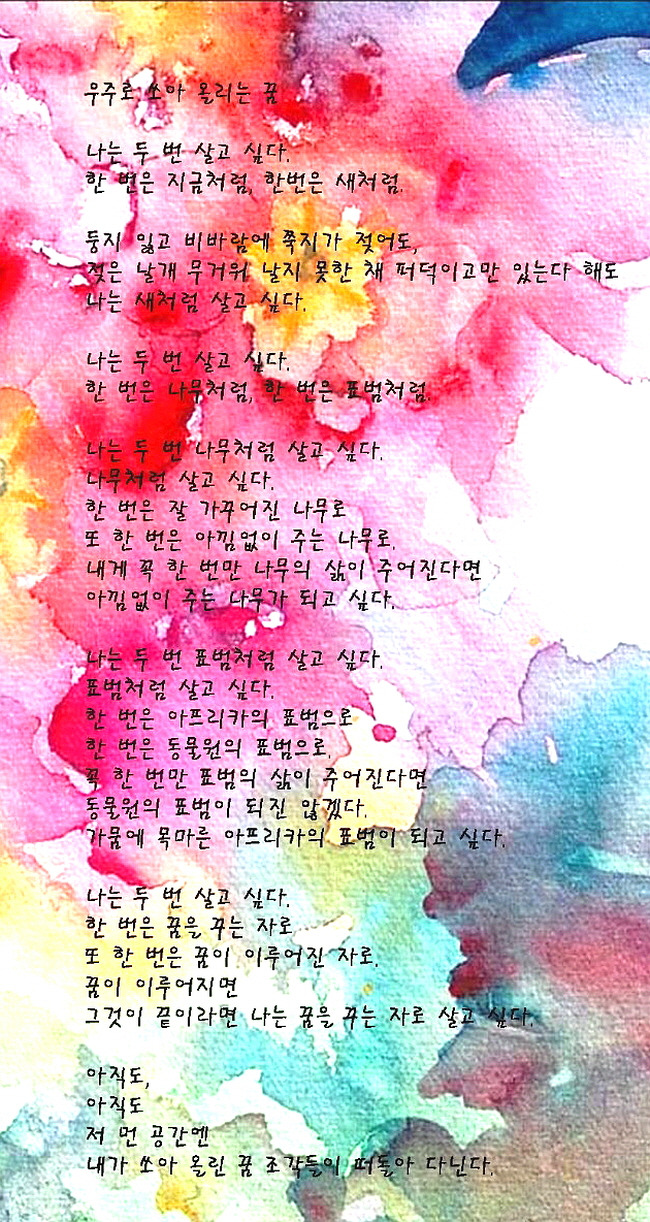 우주로 쏘아 올리는 꿈
나는 두 번 살고 싶다.
한 번은 지금처럼, 한번은 새처럼.
둥지 잃고 비바람에 쭉지가 젖어도,
젖은 날개 무거워 날지 못한 채 퍼덕이고만 있는다 해도
나는 새처럼 살고 싶다.
나는 두 번 살고 싶다.
한 번은 나무처럼, 한 번은 표범처럼.
나는 두 번 나무처럼 살고 싶다.
나무처럼 살고 싶다.
한 번은 잘 가꾸어진 나무로
또 한 번은 아낌없이 주는 나무로.
내게 꼭 한 번만 나무의 삶이 주어진다면
아낌없이 주는 나무가 되고 싶다.
나는 두 번 표범처럼 살고 싶다.
표범처럼 살고 싶다.
한 번은 아프리카의 표범으로
한 번은 동물원의 표범으로.
꼭 한 번만 표범의 삶이 주어진다면
동물원의 표범이 되진 않겠다.
가뭄에 목마른 아프리카의 표범이 되고 싶다.
나는 두 번 살고 싶다.
한 번은 꿈을 꾸는 자로
또 한 번은 꿈이 이루어진 자로.
꿈이 이루어지면
그것이 끝이라면 나는 꿈을 꾸는 자로 살고 싶다.
아직도,
아직도
저 먼 공간엔
내가 쏘아 올린 꿈 조각들이 떠돌아 다닌다.